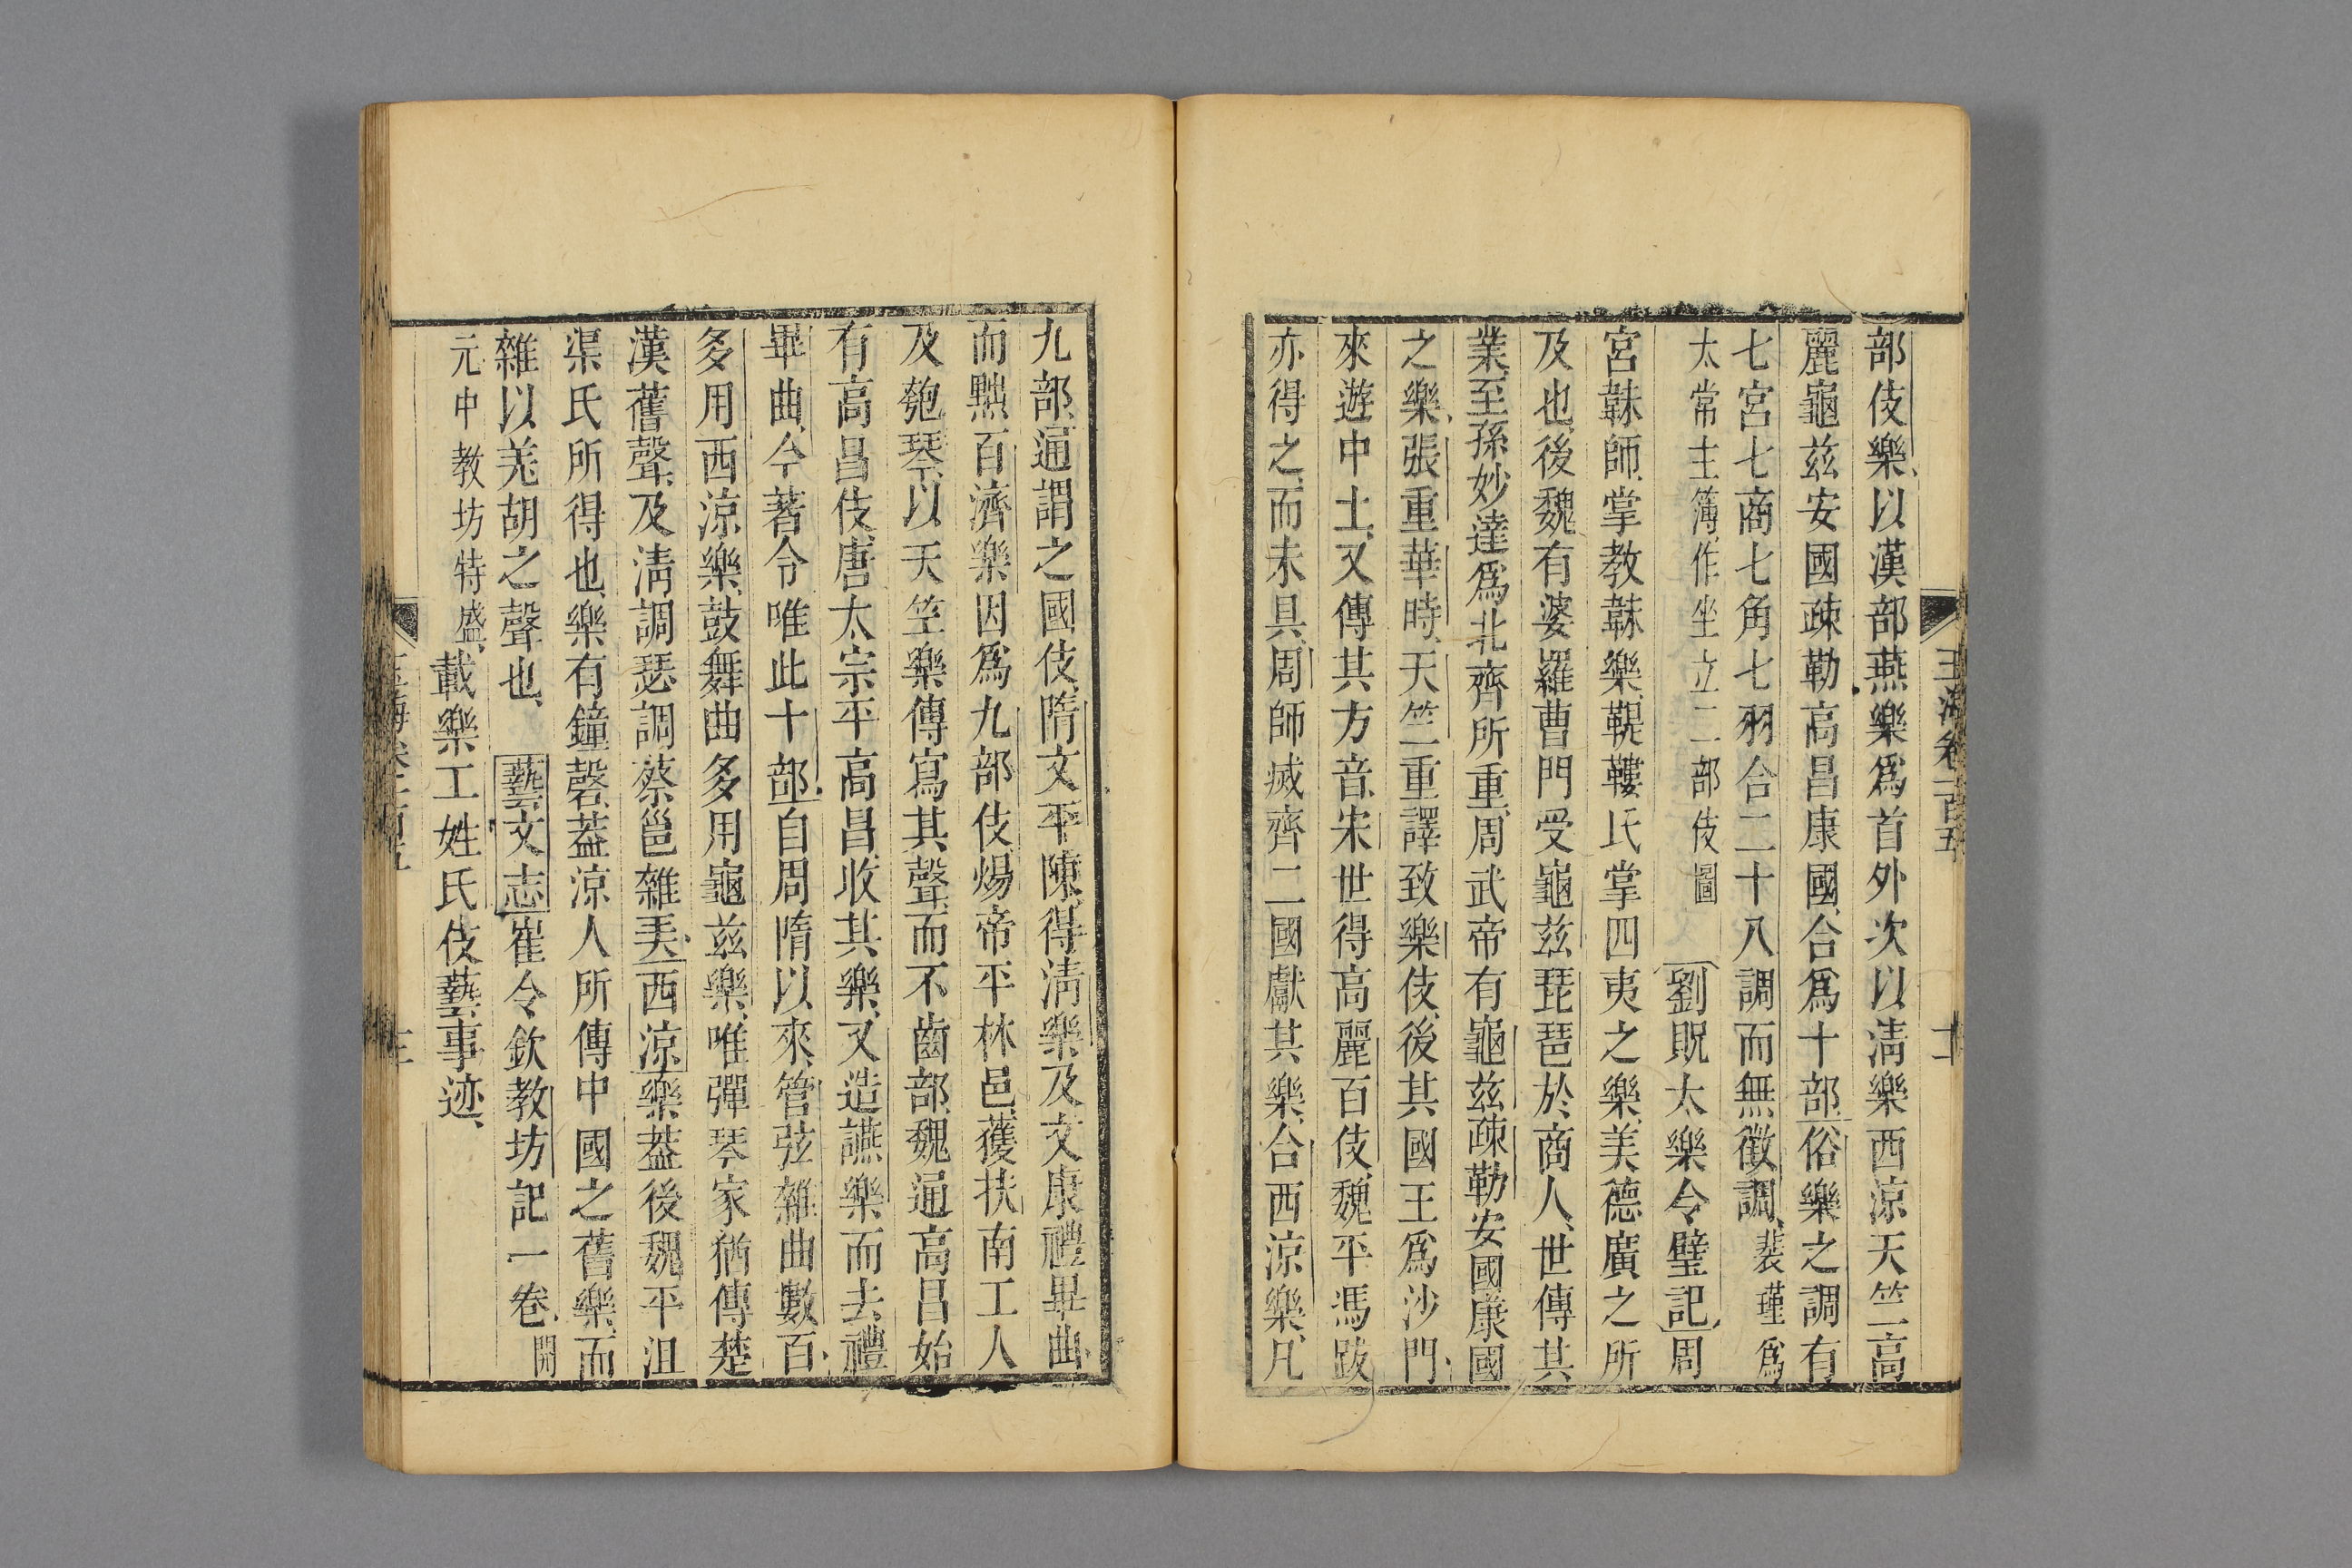 玉海卷一百五
十二
部伎樂以漢部燕樂爲首外次以淸樂西涼天竺高
麗龜兹安國疎勒高昌康國合爲十部俗樂之調有
七宮七商七角七羽合二十八調而無徵調裴瑾爲
太常主簿作坐立二部伎圖劉貺太樂令璧記周
宮韎師掌教韎樂鞮鞻氏掌四夷之樂美德廣之所
及也後魏有婆羅曹門受龜兹琵琶於商人世傳其
業至孫妙達爲北齊所重周武帝有龜兹疎勒安國康國
之樂張重華時天竺重譯致樂伎後其國王爲沙門
來遊中土又傳其方音宋世得高麗百伎魏平馮跋
亦得之而未具周師滅齊二國獻其樂合西涼樂凡
九部通謂之國伎隋文平陳得淸樂及文康禮畢曲
而黜百濟樂因爲九部伎煬帝平林邑獲扶南工人
及匏琴以天竺樂傳寫其聲而不齒部魏通高昌始
有高昌伎唐太宗平高昌收其樂又造讌樂而去禮
畢曲今著令唯此十部自周隋以來管弦雜曲數百
多用西涼樂鼓舞曲多用龜兹樂唯彈琴家猶傳楚
漢舊聲及淸調瑟調蔡邕雜弄西涼樂葢後魏平沮
渠氏所得也樂有鐘磬葢涼人所傳中國之舊樂而
雜以羌胡之聲也藝文志崔令欽教坊記一卷開
元中教坊特盛載樂工姓氏伎藝事迹